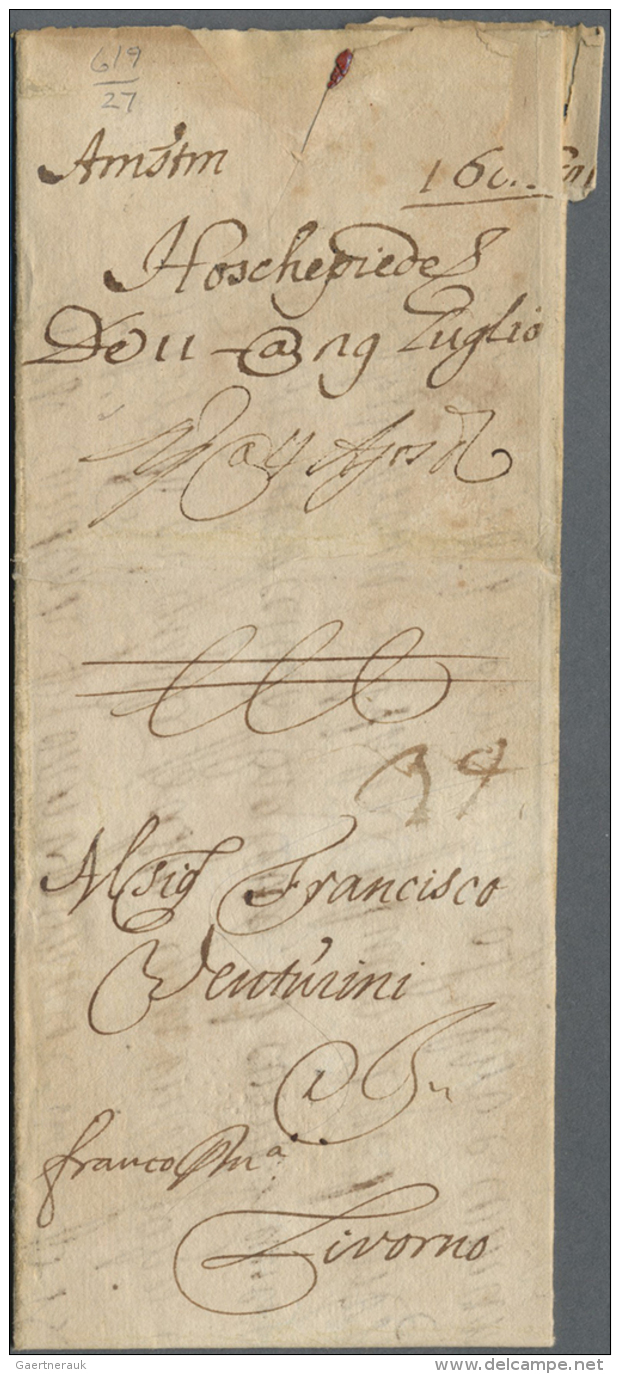 619
27
Amstm
Hoschepiede
De 11 @ 29 Luglio
34
Al sig Francisco
Venturini
In
franco
Livorno
Gaertnerauk
www.delcampe.net